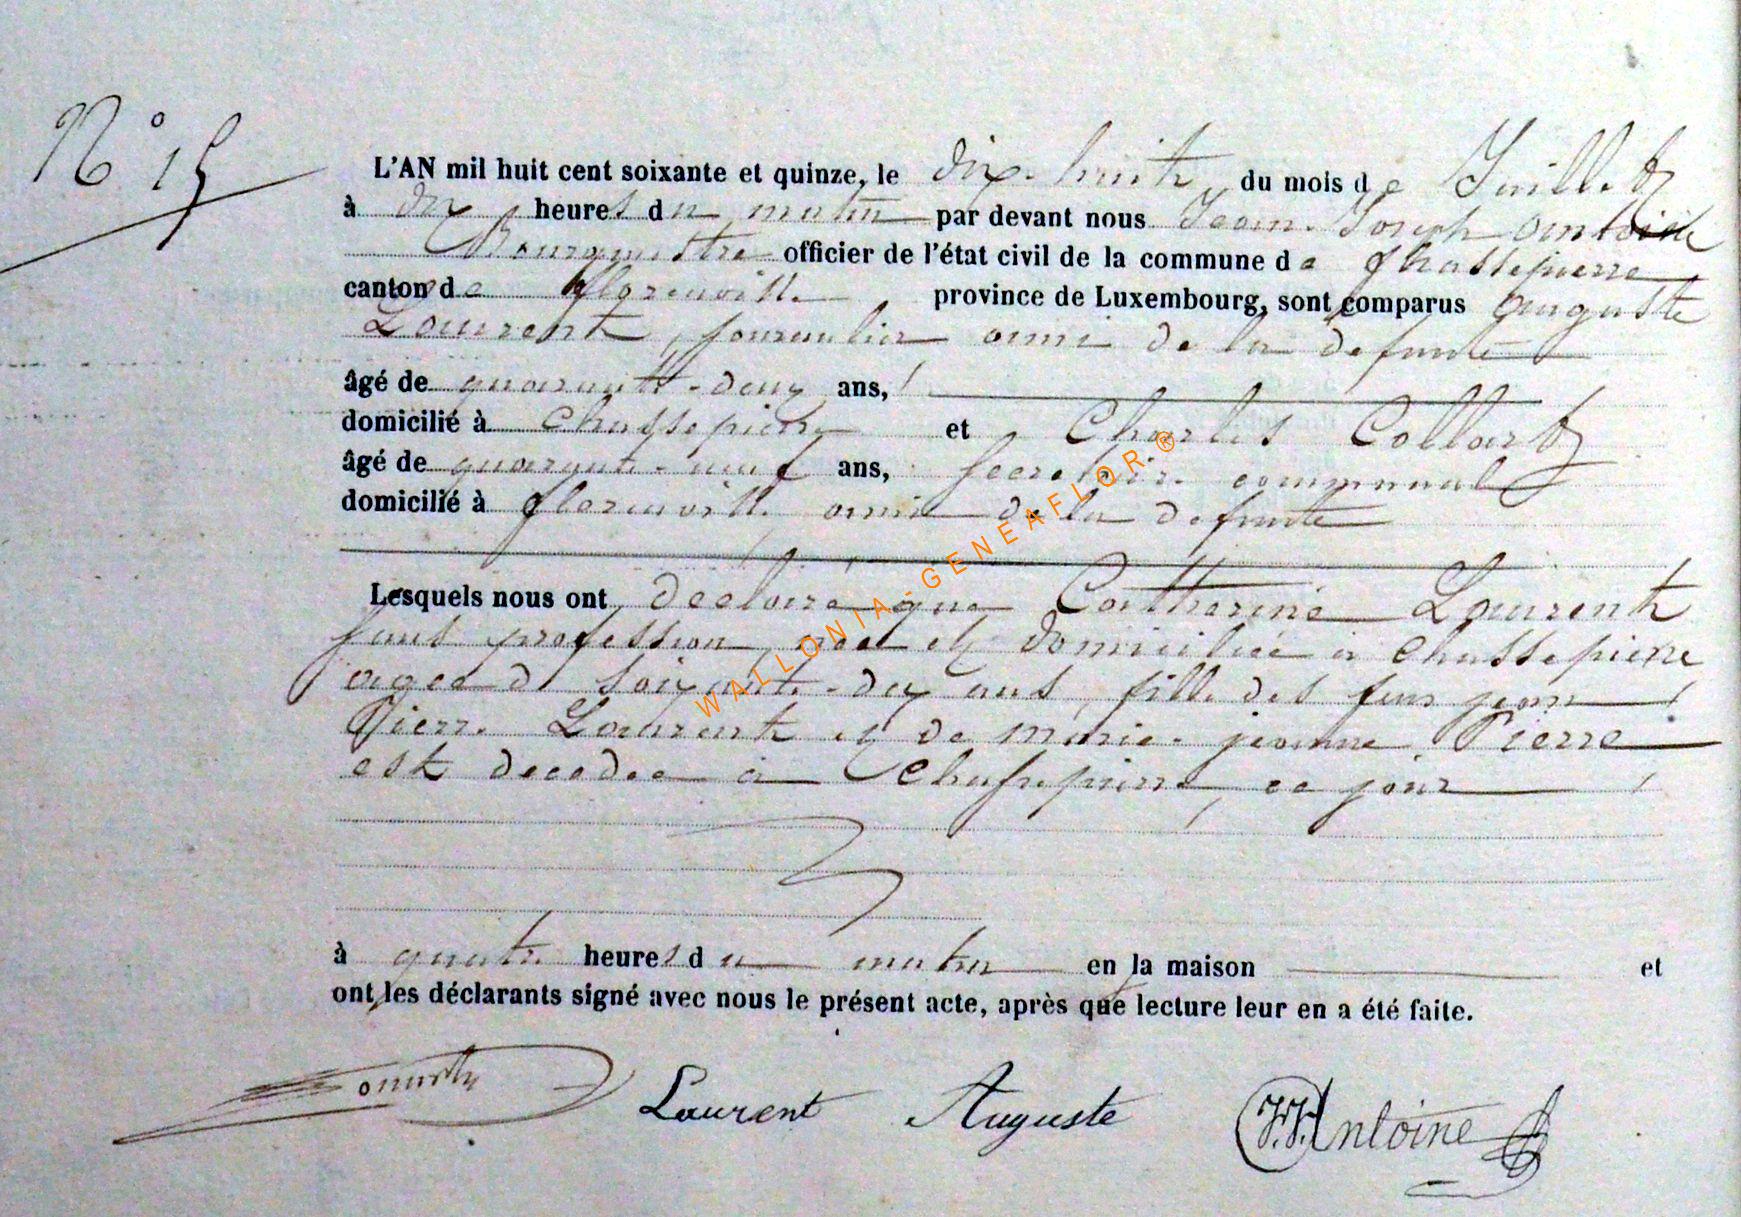 N° 15
L'AN mil huit cent soixante et quinze, le dix-huit du mois de Juillet
à dix heures du matin par devant nous Jean-Joseph Antoine
Bourgmestre officier de l'état civil de la commune de Chassepierre
canton de florenville province de Luxembourg, sont comparus Auguste
Laurent, journalier ami de la defunte
âgé de quarante-deux ans,
domicilié à Chassepierre et Charles Collart
âgé de quarante-neuf ans, secretaire communal
domicilié à florenville ami de la defunte
Lesquels nous ont declaré que Catherine Laurent
sans profession, née et domiciliée à Chassepierre
agée d soixante-dix ans, fille des feus jean
Pierre Laurent et de marie-jeanne Pierre
est decedee à Chassepierre, ce jour
à quatre heures du matin en la maison et
ont les déclarants signé avec nous le présent acte, après que lecture leur en a été faite.
Laurent Auguste J.J. Antoine
WALLONIA-GENEAFLOR®